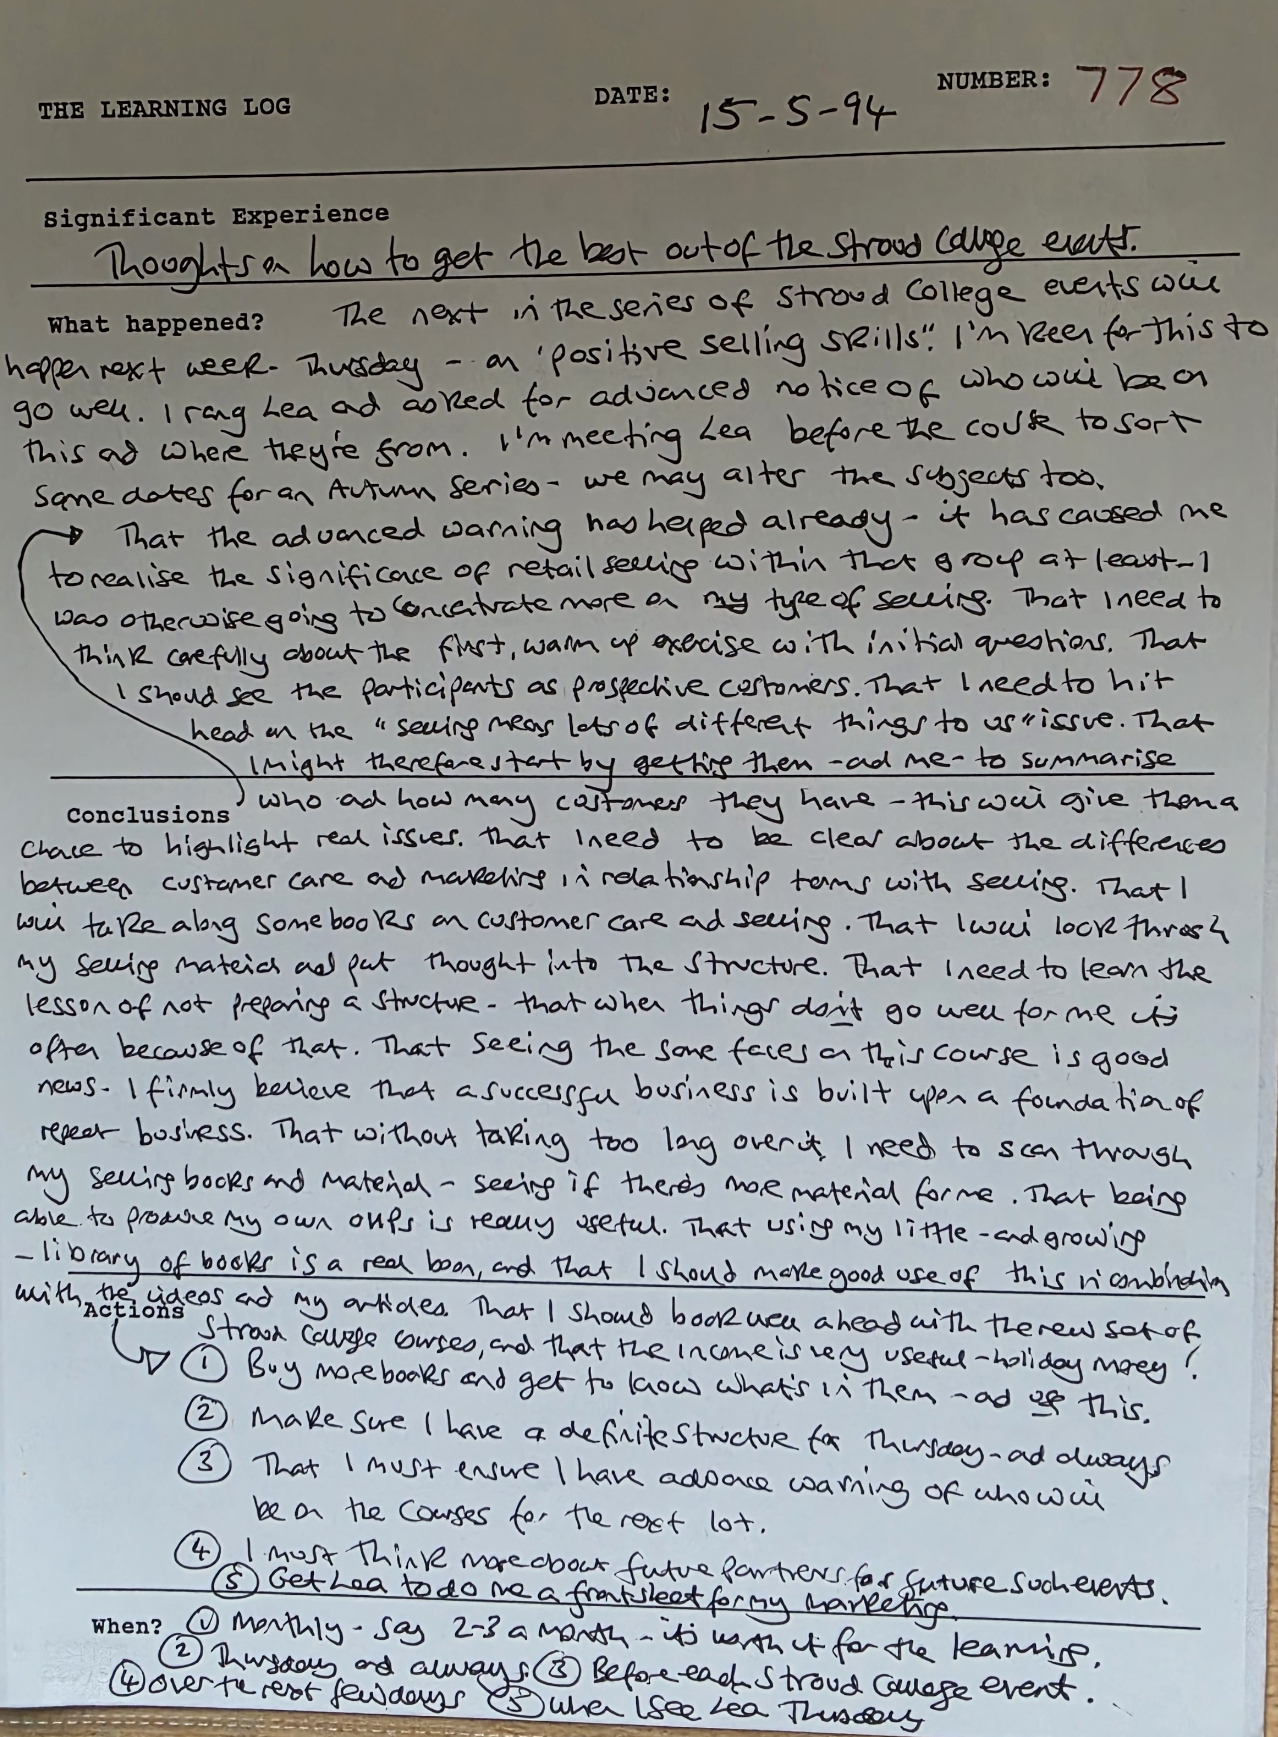 THE LEARNING LOG DATE: 15-5-94 NUMBER: 778
Significant Experience
Thoughts on how to get the best out of the Stroud College events.
What happened? The next in the series of Stroud College events will
happen next week - Thursday - on 'positive selling skills". I'm keen for this to
go well. I rang Lea and asked for advanced notice of who will be on
this and where they're from. I'm meeting Lea before the course to sort
some dates for an Autumn series - we may alter the subjects too.
That the advanced warning has helped already - it has caused me
to realise the significance of retail selling within that group at least - I
was otherwise going to concentrate more on my type of selling. That I need to
think carefully about the first, warm up exercise with initial questions. That
I should see the participants as prospective customers. That I need to hit
head on the "selling means lots of different things to us" issue. That
I might therefore start by getting them - and me - to summarise
Conclusions who and how many customers they have - this will give them a
chance to highlight real issues. That I need to be clear about the differences
between customer care and marketing in relationship terms with selling. That I
will take along some books on customer care and selling. That I will look through
my selling material and put thought into the structure. That I need to learn the
lesson of not preparing a structure - that when things don't go well for me it's
often because of that. That seeing the same faces on this course is good
news - I firmly believe that a successful business is built upon a foundation of
repeat business. That without taking too long over it, I need to scan through
my selling books and material - seeing if there's more material for me. That being
able to produce my own OHPs is really useful. That using my little - and growing
- library of books is a real boon, and that I should make good use of this in combining
with the videos and my articles. That I should book well ahead with the new set of
Actions Stroud College courses, and that the income is very useful - holiday money!
① Buy more books and get to know what's in them - and use this.
② Make sure I have a definite structure for Thursday - and always
③ That I must ensure I have advance warning of who will
be on the courses for the next lot.
④ I must think more about future partners for future such events.
⑤ Get Lea to do me a front sheet for my marketing.
When? ① Monthly - say 2-3 a month - it's worth it for the learning.
② Thursday and always. ③ Before each Stroud College event.
④ Over the next few days ⑤ When I see Lea Thursday